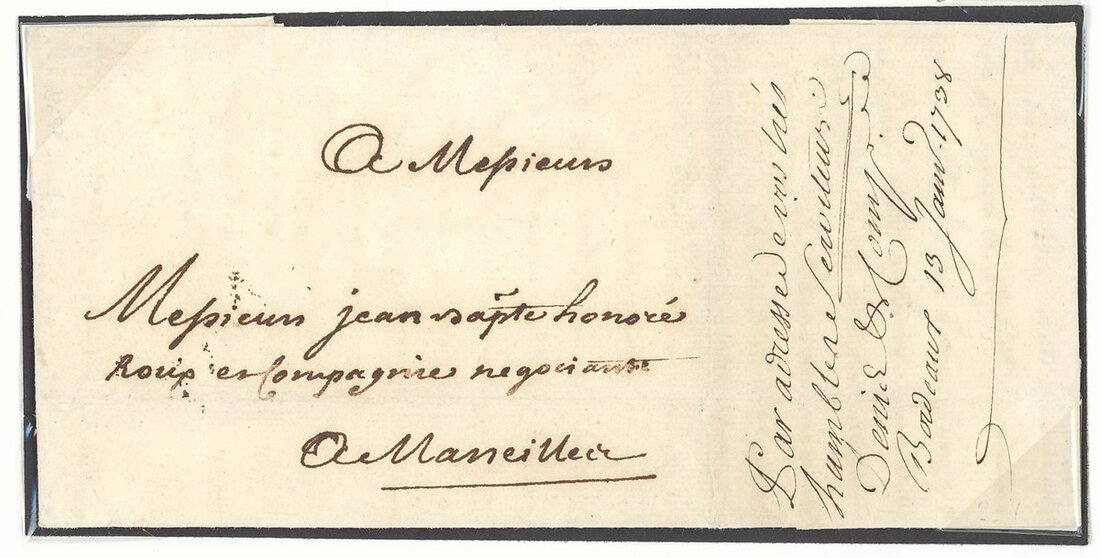 A Messieurs
Messieurs jean bapte honoré
Roux et Compagnie negociants
A Marseille
Par adresse de vos très
humbles Serviteurs
Denis & Comp
Bordeaux 13 Janvr 1738